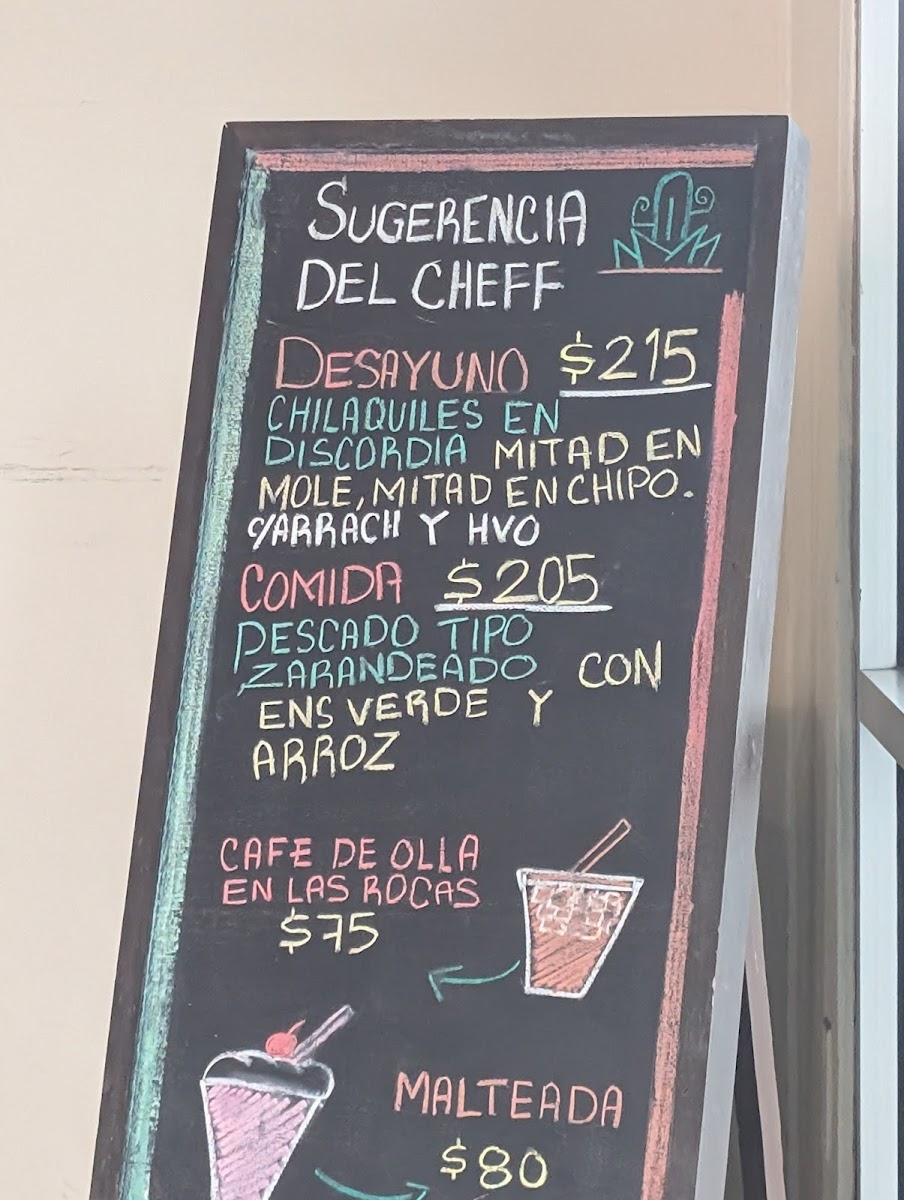 SUGERENCIA
DEL CHEFF
DESAYUNO $215
CHILAQUILES EN
DISCORDIA MITAD EN
MOLE, MITAD EN CHIPO.
C/ARRACH Y HVO
COMIDA $205
PESCADO TIPO
ZARANDEADO CON
ENS VERDE Y
ARROZ
CAFE DE OLLA
EN LAS ROCAS
$75
MALTEADA
$80